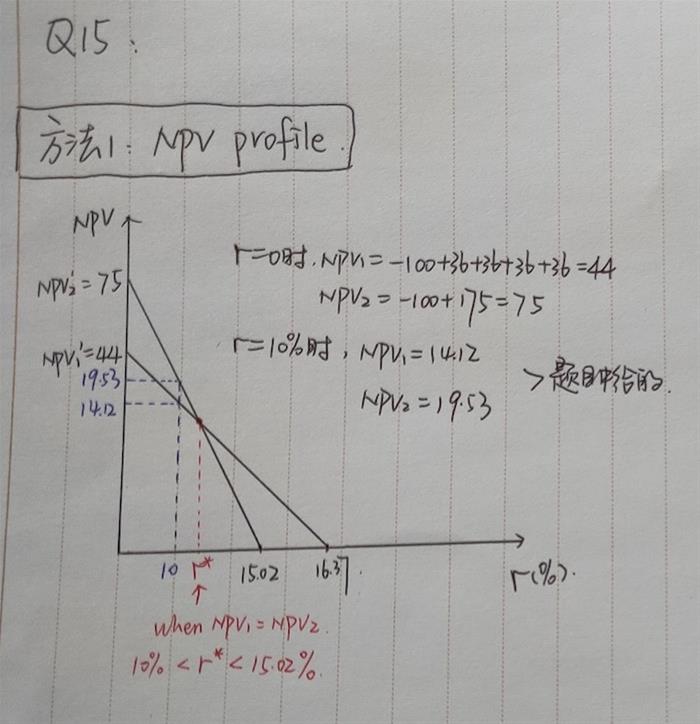 Q15:
方法1: NPV profile.
NPV
r=0时. NPV₁=-100+36+36+36+36=44
NPV₂=-100+175=75
NPV₂'=75
r=10%时, NPV₁=14.12
NPV₂=19.53
>题目中给的.
NPV₁'=44
19.53
14.12
10 r* 15.02 16.37 r(%).
↑
when NPV₁=NPV₂.
10%<r*<15.02%.